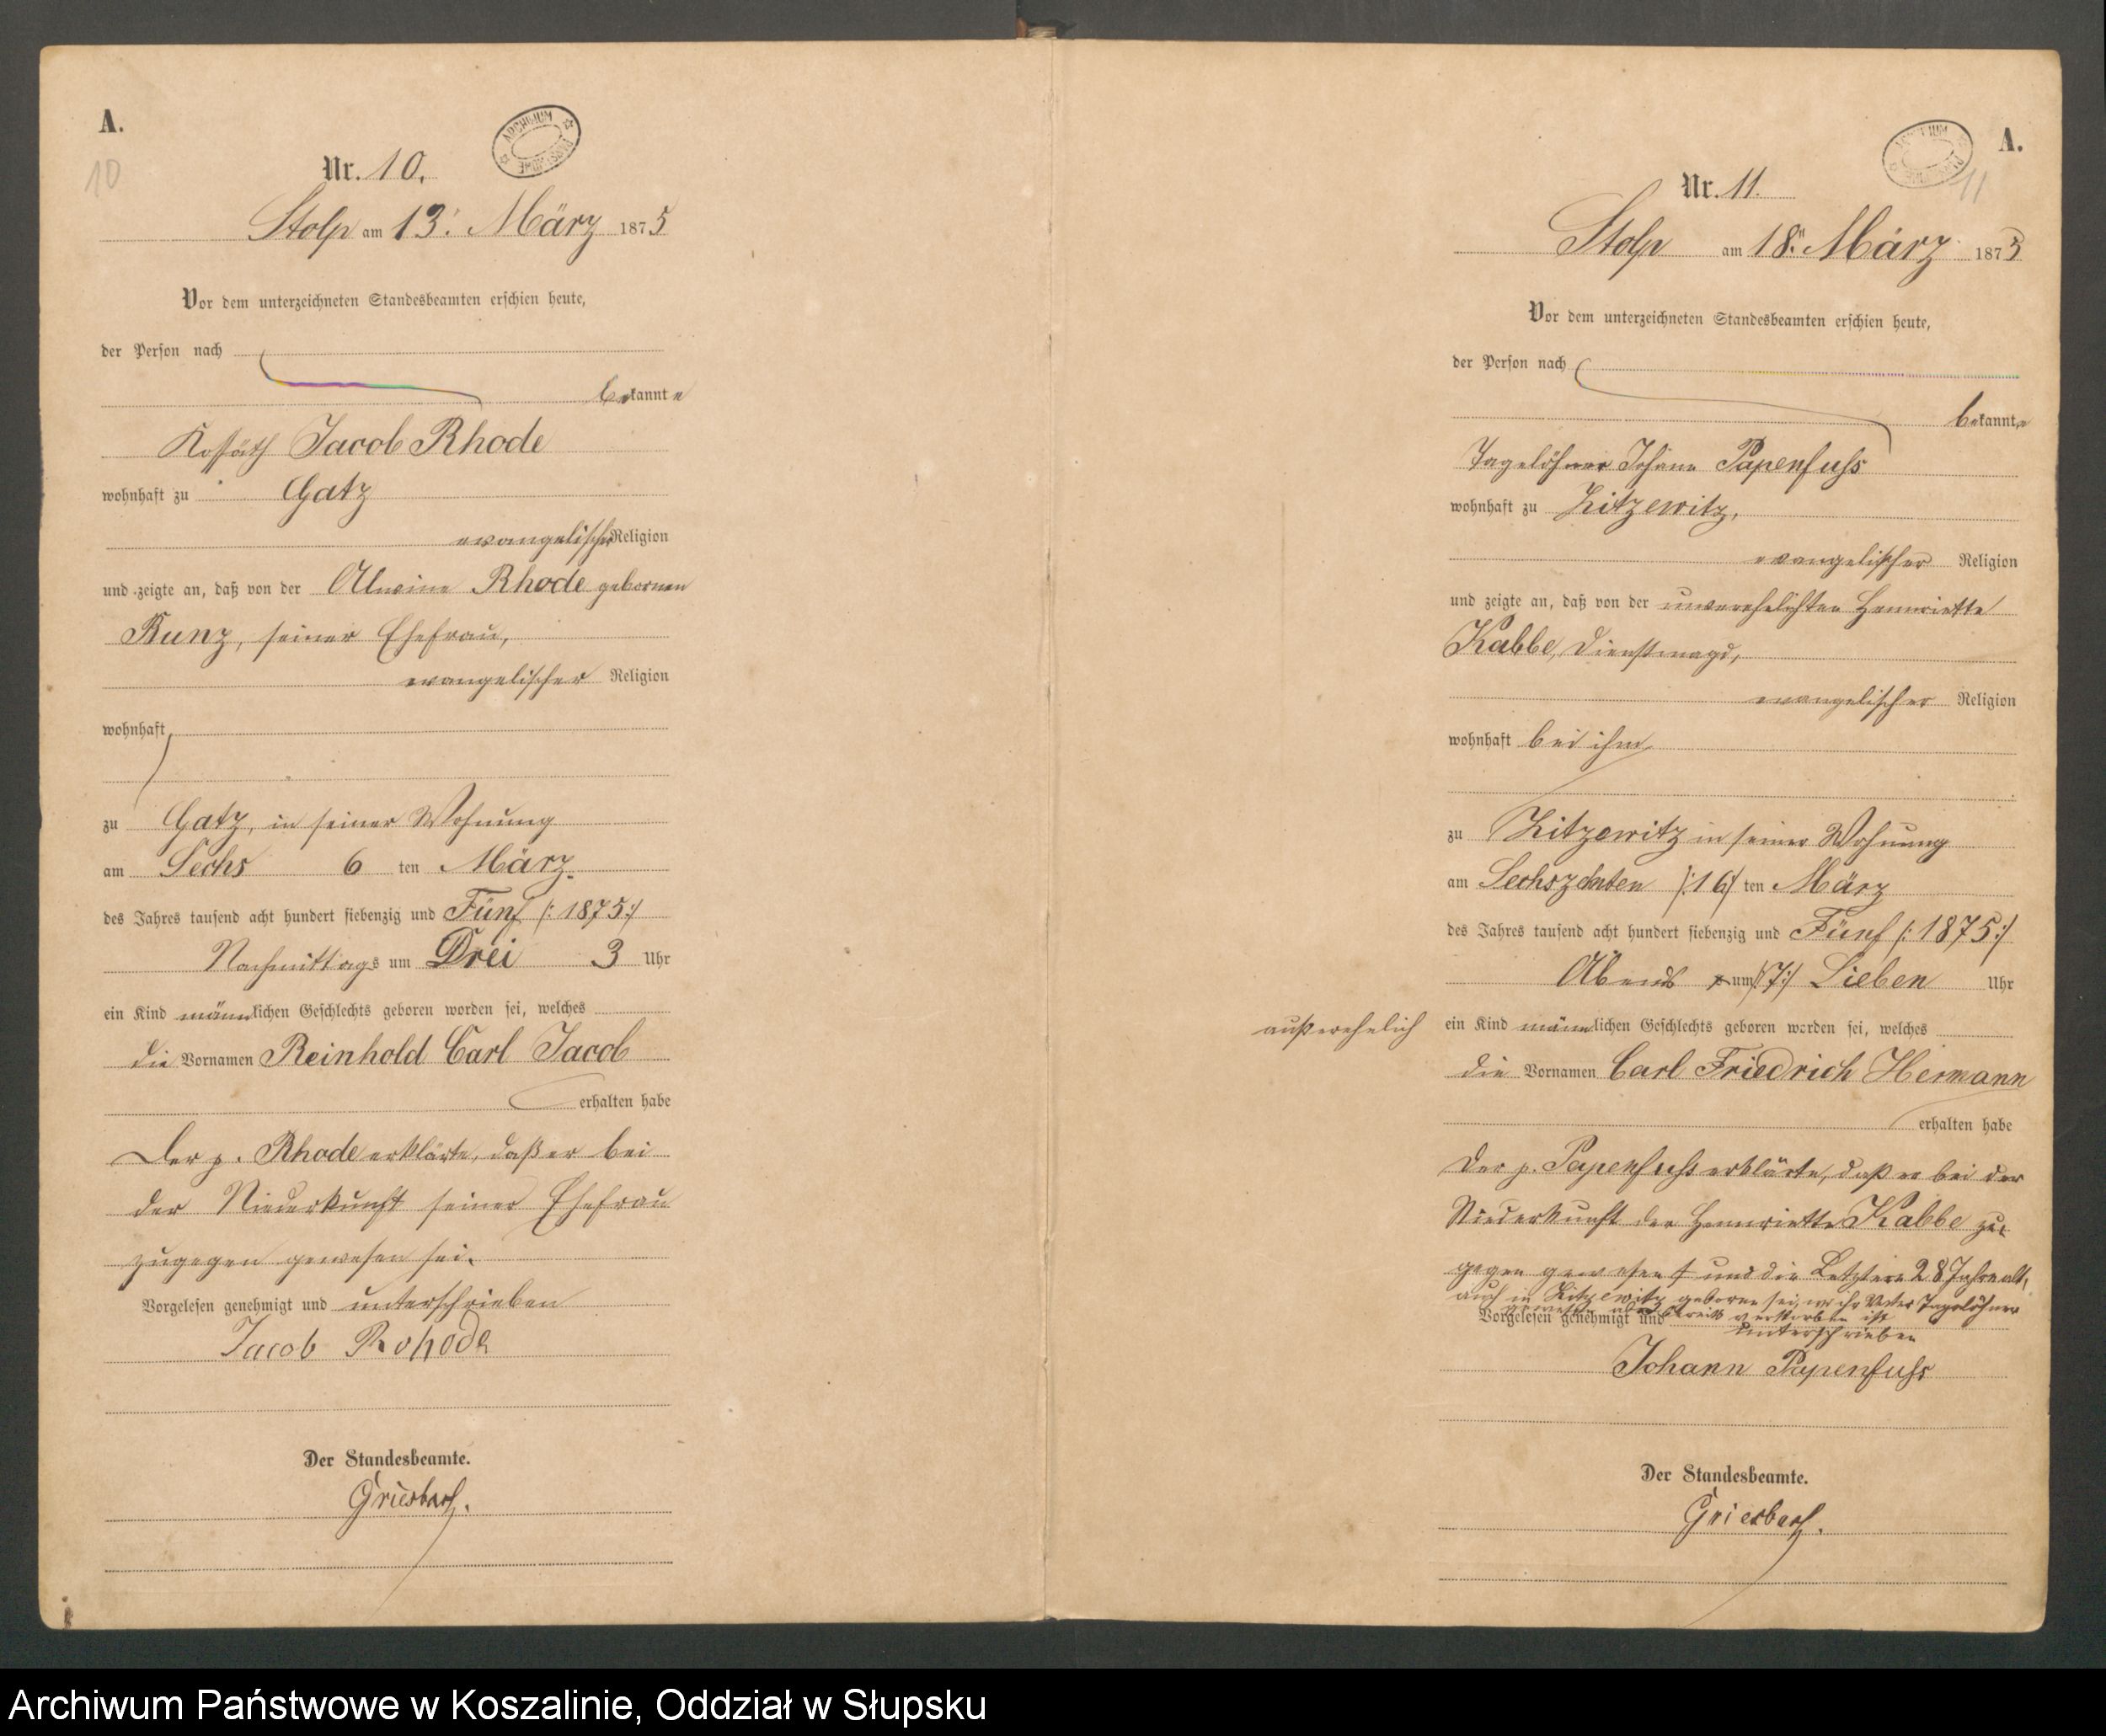 A.
10
ARCHIWUM
Nr. 10.
Stolp am 13. März 1875
Vor dem unterzeichneten Standesbeamten erschien heute,
der Person nach
bekannte
Kossäth Jacob Rhode
wohnhaft zu Gatz
evangelischer Religion
und zeigte an, daß von der Alwine Rhode gebornen
Bunz, seiner Ehefrau,
evangelischer Religion
wohnhaft
zu Gatz, in seiner Wohnung
am Sechs 6 ten März
des Jahres tausend acht hundert siebenzig und Fünf /: 1875 :/
Nachmittags um Drei 3 Uhr
ein Kind männlichen Geschlechts geboren worden sei, welches
die Vornamen Reinhold Carl Jacob
erhalten habe
Der p. Rhode erklärte, daß er bei
der Niederkunft seiner Ehefrau
zugegen gewesen sei.
Vorgelesen genehmigt und unterschrieben
Jacob Rohode
Der Standesbeamte.
Griesbach.
A.
11
Nr. 11.
Stolp am 18. März 1875
Vor dem unterzeichneten Standesbeamten erschien heute,
der Person nach
bekannte
Tagelöhner Johann Papenfuhs
wohnhaft zu Zitzewitz,
evangelischer Religion
und zeigte an, daß von der unverehelichten Henriette
Kabbe, Dienstmagd,
evangelischer Religion
wohnhaft bei ihm
zu Zitzewitz in seiner Wohnung
am Sechszehnten /: 16 :/ ten März
des Jahres tausend acht hundert siebenzig und Fünf /: 1875 :/
Abends um /: 7 :/ Sieben Uhr
außerehelich
ein Kind männlichen Geschlechts geboren worden sei, welches
die Vornamen Carl Friedrich Hermann
erhalten habe
Der p. Papenfuhs erklärte, daß er bei der
Niederkunft der Henriette Kabbe zu-
gegen gewesen und die Letztere 28 Jahre alt,
auch in Zitzewitz geboren sei, wo ihr Vater Tagelöhner
gewesen aber bereits verstorben ist
Vorgelesen genehmigt und unterschrieben
Johann Papenfuhs
Der Standesbeamte.
Griesbach.
Archiwum Państwowe w Koszalinie, Oddział w Słupsku